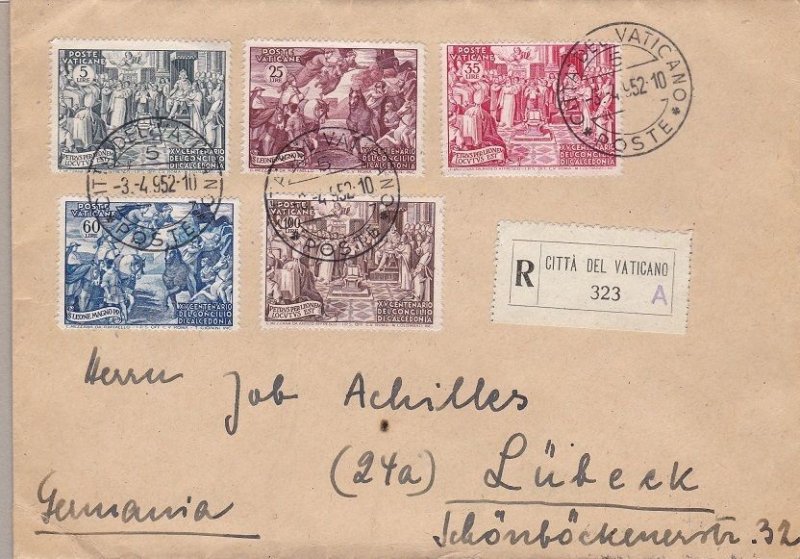 POSTE VATICANE
5 LIRE
PETRUS PER LEONEM LOCUTUS EST
XV CENTENARIO DEL CONCILIO DI CALCEDONIA
POSTE VATICANE
25 LIRE
S. LEONE MAGNO PP.
XV CENTENARIO DEL CONCILIO DI CALCEDONIA
POSTE VATICANE
35 LIRE
PETRUS PER LEONEM LOCUTUS EST
XV CENTENARIO DEL CONCILIO DI CALCEDONIA
CITTÀ DEL VATICANO
-3.-4.952-10
* POSTE *
CITTÀ DEL VATICANO
5
-3.-4.952-10
POSTE
VATICANO
5
-4.952-10
* POSTE *
POSTE VATICANE
60 LIRE
S. LEONE MAGNO PP.
XV CENTENARIO DEL CONCILIO DI CALCEDONIA
POSTE VATICANE
100
PETRUS PER LEONEM LOCUTUS EST
XV CENTENARIO DEL CONCILIO DI CALCEDONIA
R CITTÀ DEL VATICANO
323 A
Herrn Job Achilles
(24a) Lübeck
Germania
Schönböckenerstr. 32